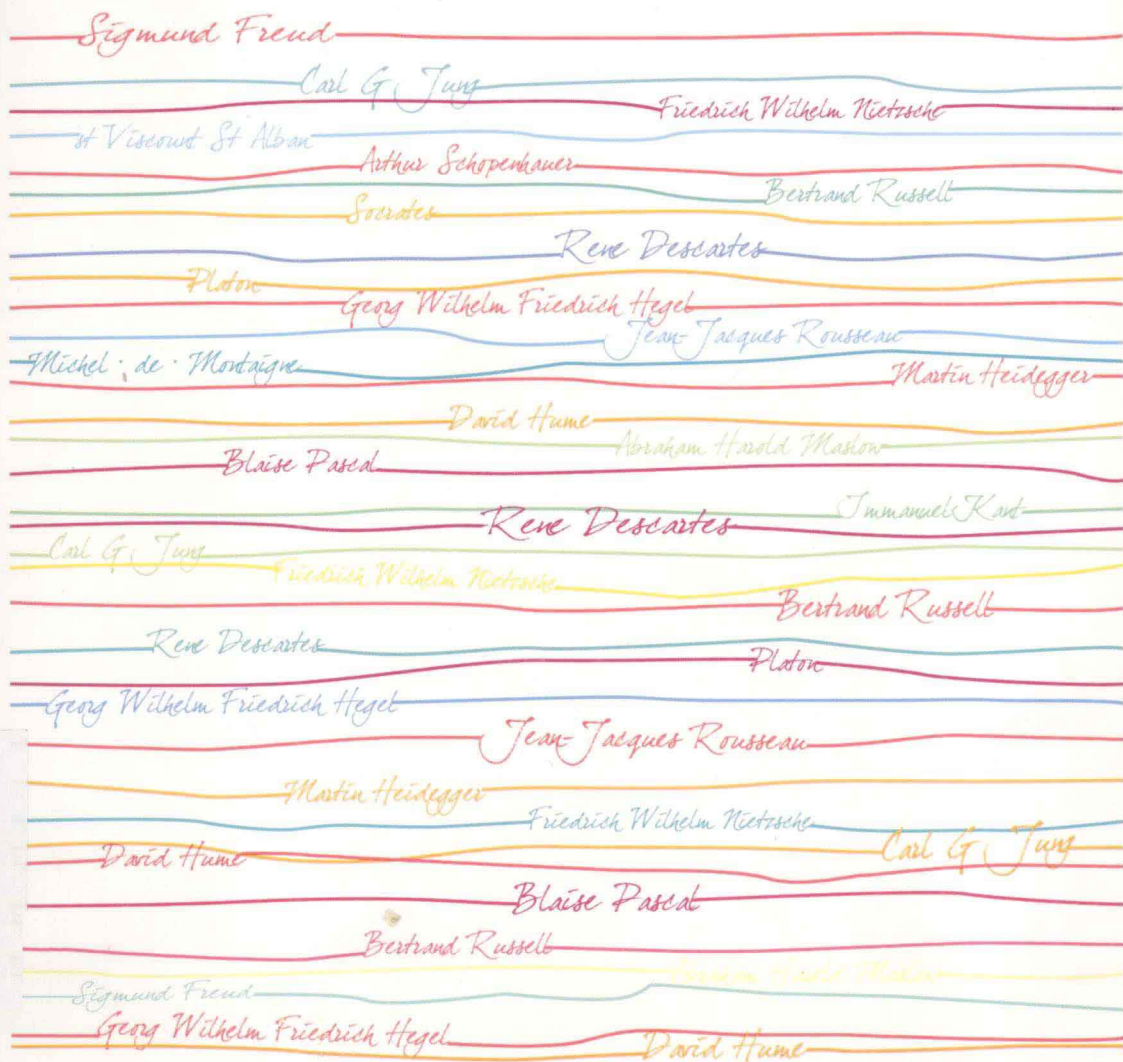 Sigmund Freud
Carl G Jung
Friedrich Wilhelm Nietzsche
st Viscount St Alban
Arthur Schopenhauer
Bertrand Russell
Socrates
Rene Descartes
Platon
Georg Wilhelm Friedrich Hegel
Jean-Jacques Rousseau
Michel · de · Montaigne
Martin Heidegger
David Hume
Abraham Harold Maslow
Blaise Pascal
Immanuel Kant
Rene Descartes
Carl G Jung
Friedrich Wilhelm Nietzsche
Bertrand Russell
Rene Descartes
Platon
Georg Wilhelm Friedrich Hegel
Jean-Jacques Rousseau
Martin Heidegger
Friedrich Wilhelm Nietzsche
Carl G Jung
David Hume
Blaise Pascal
Bertrand Russell
Sigmund Freud
Georg Wilhelm Friedrich Hegel
David Hume